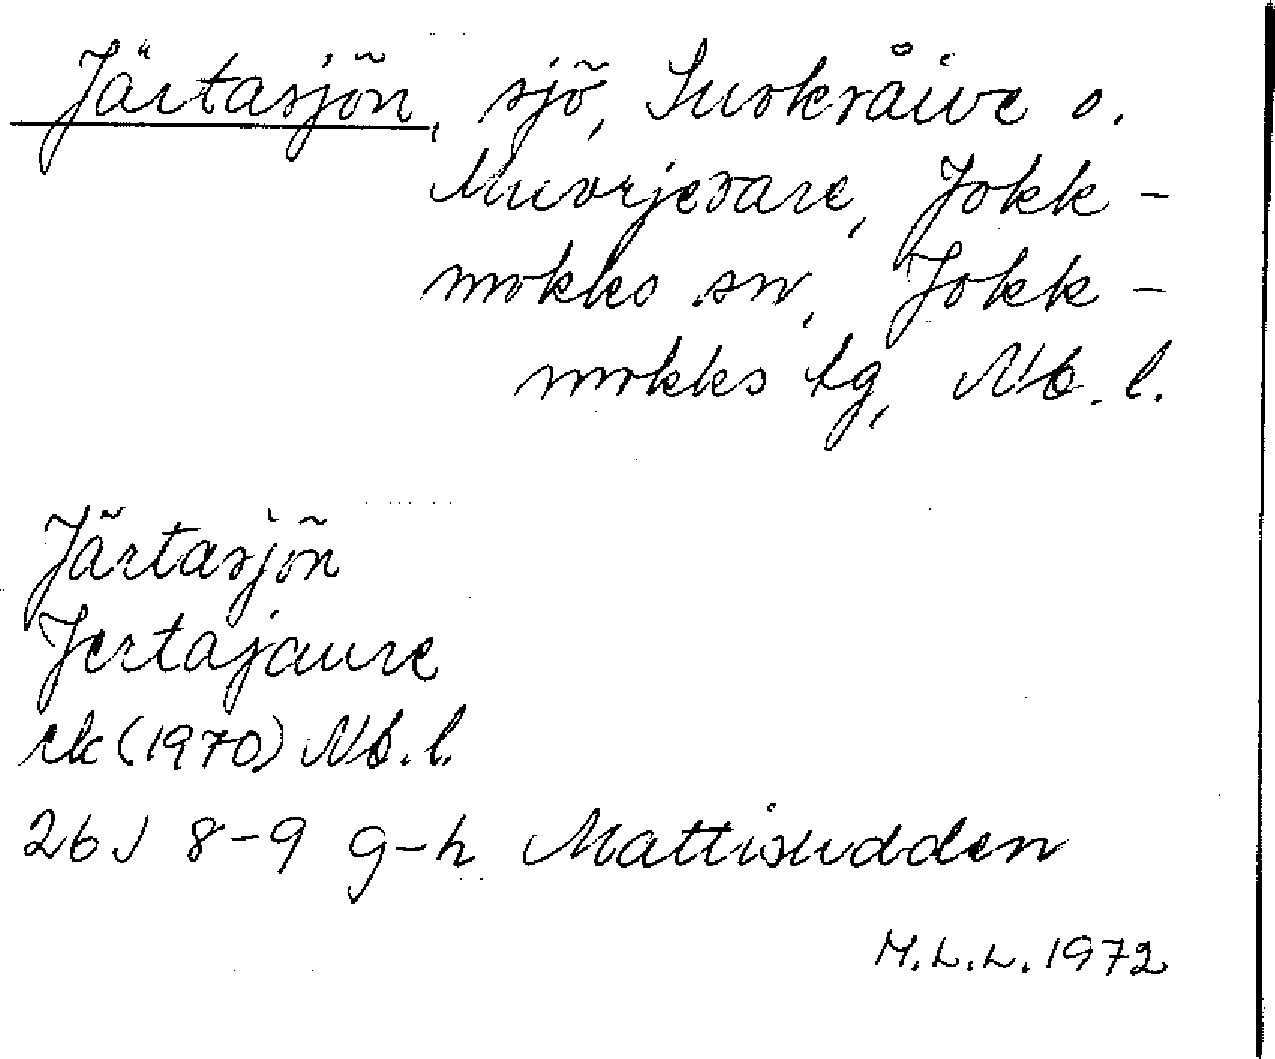 Järtasjön, sjö, Suokråive o.
Muorjevare, Jokk-
mokks sn, Jokk-
mokks tg, Nb. l.
Järtasjön
Jertajaure
ek (1970) Nb. l.
26J 8-9 g-h Mattisudden
M.L.L. 1972